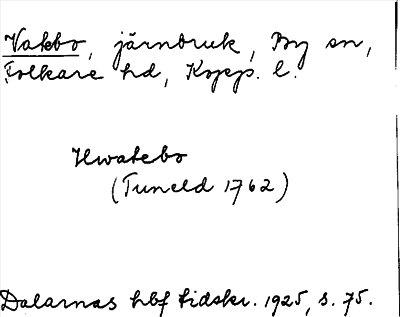 Vakbo, järnbruk, By sn,
Folkare hd, Kopp. l.
Hwatebo
(Tuneld 1762)
Dalarnas hbf tidskr. 1925, s. 75.